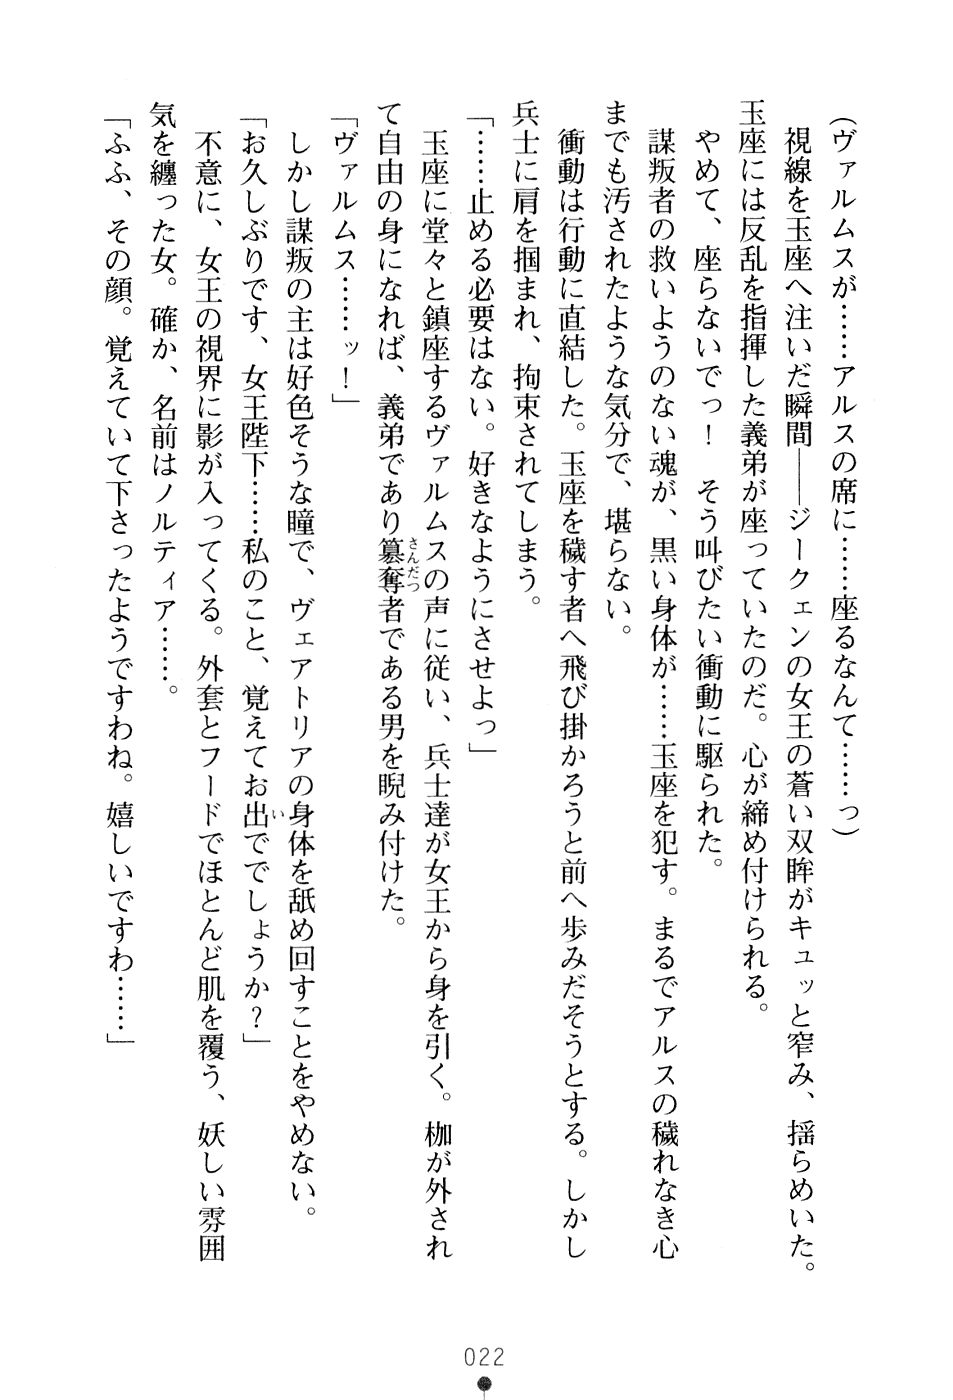 (ヴァルムスが……アルスの席に……座るなんて……っ)
視線を玉座へ注いだ瞬間――ジークェンの女王の蒼い双眸がキュッと窄み、揺らめいた。
玉座には反乱を指揮した義弟が座っていたのだ。心が締め付けられる。
やめて、座らないでっ！　そう叫びたい衝動に駆られた。
謀叛者の救いようのない魂が、黒い身体が……玉座を犯す。まるでアルスの穢れなき心
までも汚されたような気分で、堪らない。
衝動は行動に直結した。玉座を穢す者へ飛び掛かろうと前へ歩みだそうとする。しかし
兵士に肩を掴まれ、拘束されてしまう。
「……止める必要はない。好きなようにさせよっ」
玉座に堂々と鎮座するヴァルムスの声に従い、兵士達が女王から身を引く。枷が外され
て自由の身になれば、義弟であり簒奪者である男を睨み付けた。
さんだつ
「ヴァルムス……ッ！」
しかし謀叛の主は好色そうな瞳で、ヴェアトリアの身体を舐め回すことをやめない。
「お久しぶりです、女王陛下……私のこと、覚えてお出ででしょうか？」
い
不意に、女王の視界に影が入ってくる。外套とフードでほとんど肌を覆う、妖しい雰囲
気を纏った女。確か、名前はノルティア……。
「ふふ、その顔。覚えていて下さったようですわね。嬉しいですわ……」
022